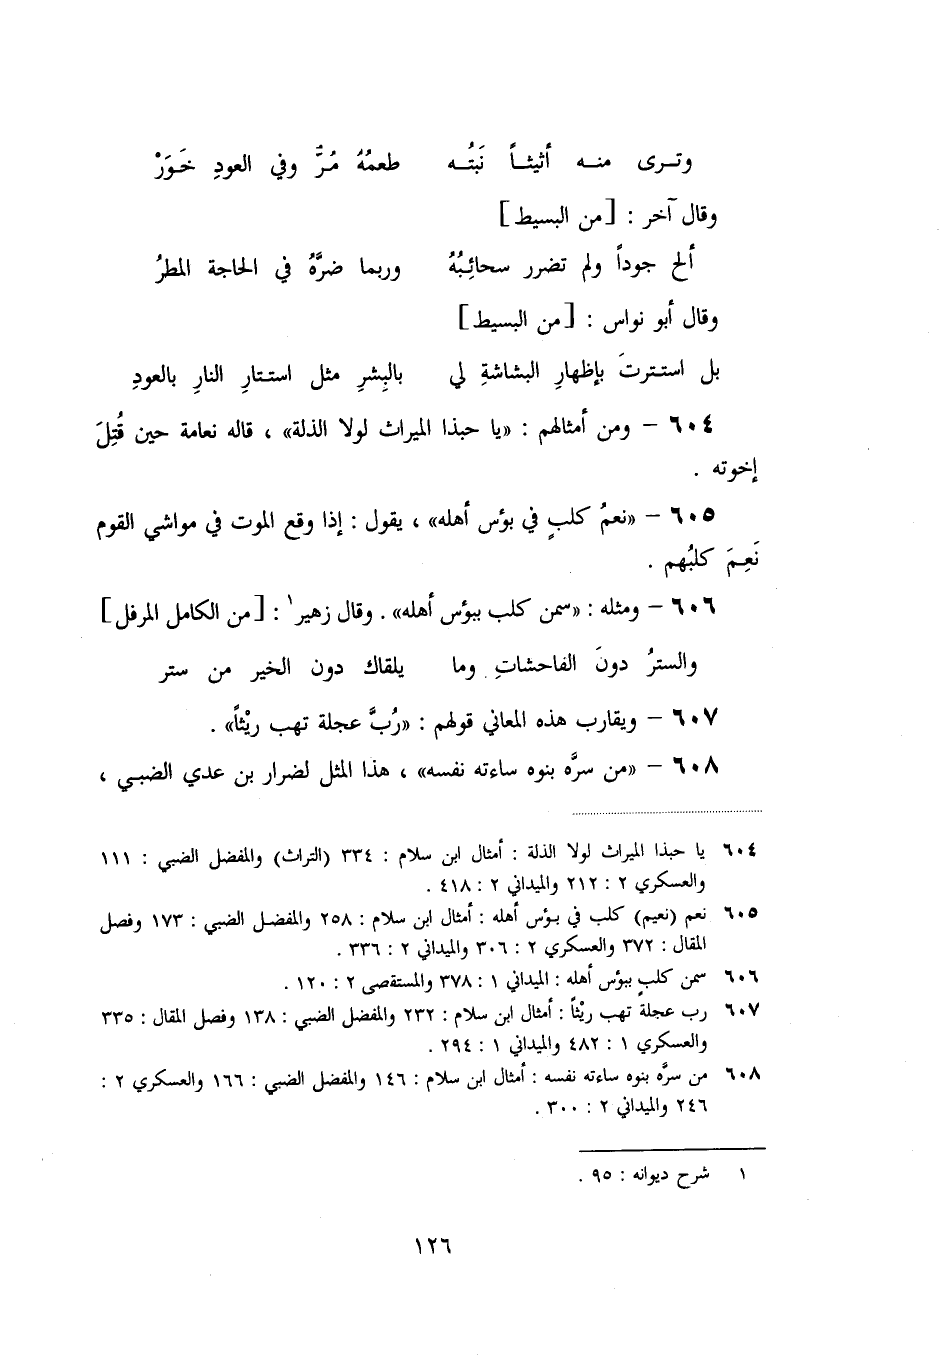 وتـرى منـه أثيثـاً نَبتُـه طعمُهُ مُـرٌّ وفي العودِ خَـوَرْ
وقال آخر : [من البسيط]
ألح جوداً ولم تضرر سحائِبُهُ وربما ضرَّهُ في الحاجة المطرُ
وقال أبو نواس : [من البسيط]
بل استـترتَ بإظهارِ البشاشةِ لي بالبِشرِ مثل استـتارِ النارِ بالعودِ
٦٠٤ – ومن أمثالهم : «يا حبذا الميراث لولا الذلة» ، قاله نعامة حين قُتِلَ
إخوته .
٦٠٥ – «نعمُ كلبٍ في بؤس أهله» ، يقول : إذا وقع الموت في مواشي القوم
نَعِمَ كلبُهم .
٦٠٦ – ومثله : «سمن كلب ببؤس أهله» . وقال زهير١ : [من الكامل المرفل]
والسترُ دونَ الفاحشاتِ وما يلقاك دون الخير من ستر
٦٠٧ – ويقارب هذه المعاني قولهم : «رُبَّ عجلة تهب ريْثاً» .
٦٠٨ – «من سرَّه بنوه ساءته نفسه» ، هذا المثل لضرار بن عدي الضبـي ،
٦٠٤ يا حبذا الميراث لولا الذلة : أمثال ابن سلام : ٣٣٤ (التراث) والمفضل الضبي : ١١١
والعسكري ٢ : ٢١٢ والميداني ٢ : ٤١٨ .
٦٠٥ نعم (نعيم) كلب في بـؤس أهله : أمثال ابن سلام : ٢٥٨ والمفضـل الضبي : ١٧٣ وفصل
المقال : ٣٧٢ والعسكري ٢ : ٣٠٦ والميداني ٢ : ٣٣٦ .
٦٠٦ سمن كلبٍ ببؤس أهله : الميداني ١ : ٣٧٨ والمستقصى ٢ : ١٢٠ .
٦٠٧ رب عجلة تهب ريْثاً : أمثال ابن سلام : ٢٣٢ والمفضل الضبي : ١٣٨ وفصل المقال : ٣٣٥
والعسكري ١ : ٤٨٢ والميداني ١ : ٢٩٤ .
٦٠٨ من سرَّه بنوه ساءته نفسه : أمثال ابن سلام : ١٤٦ والمفضل الضبي : ١٦٦ والعسكري ٢ :
٢٤٦ والميداني ٢ : ٣٠٠ .
١ شرح ديوانه : ٩٥ .
١٢٦